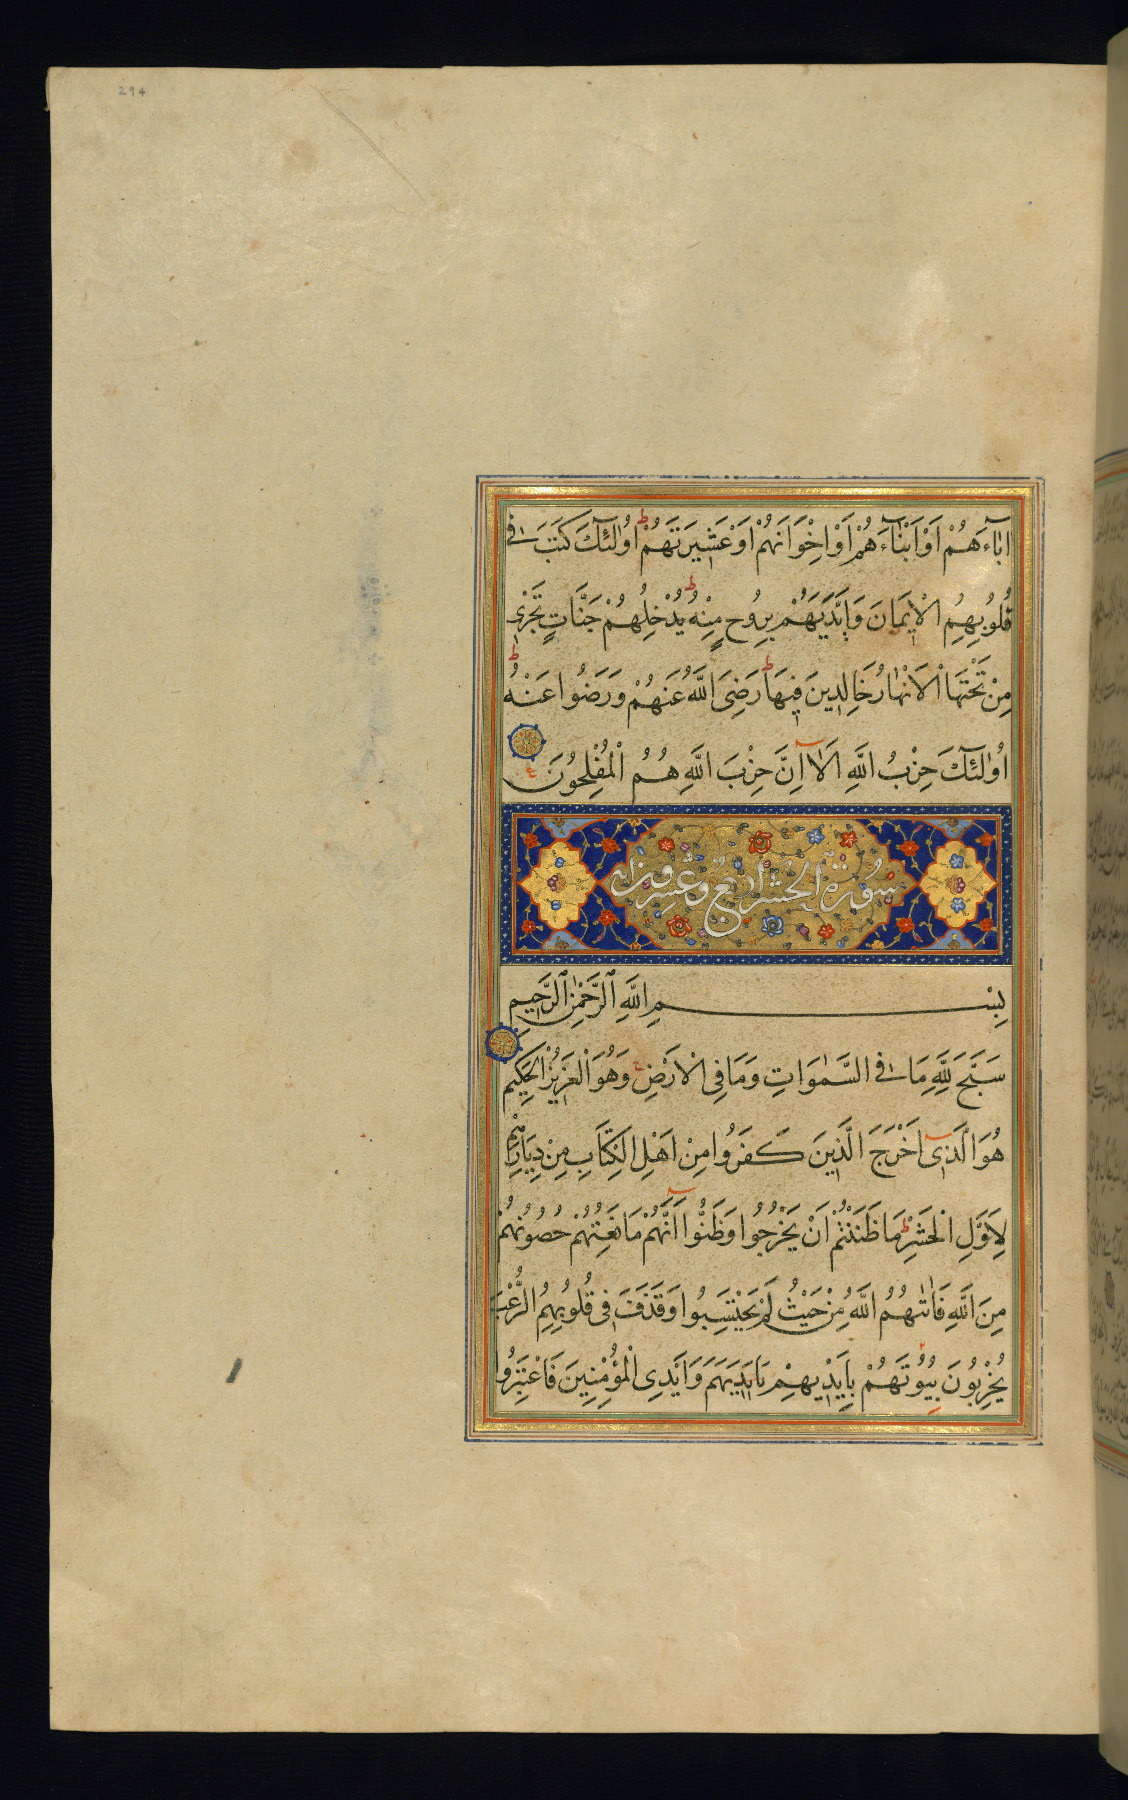 294
اٰبَآءَهُمْ اَوْ اَبْنَآءَهُمْ اَوْ اِخْوَانَهُمْ اَوْ عَشِيرَتَهُمْ ط اُولٰٓئِكَ كَتَبَ فِى
قُلُوبِهِمُ الْاِيمَانَ وَاَيَّدَهُمْ بِرُوحٍ مِنْهُ ط يُدْخِلُهُمْ جَنَّاتٍ تَجْرِى
مِنْ تَحْتِهَا الْاَنْهَارُ خَالِدِينَ فِيهَا ط رَضِىَ اللّٰهُ عَنْهُمْ وَرَضُوا عَنْهُ ط
اُولٰٓئِكَ حِزْبُ اللّٰهِ اَلَآ اِنَّ حِزْبَ اللّٰهِ هُمُ الْمُفْلِحُونَ
سُورَةُ الْحَشْرِ اربع وعشرون اية
بِسْمِ اللّٰهِ الرَّحْمٰنِ الرَّحِيمِ
سَبَّحَ لِلّٰهِ مَا فِى السَّمٰوَاتِ وَمَا فِى الْاَرْضِ وَهُوَ الْعَزِيزُ الْحَكِيمُ
هُوَ الَّذِىٓ اَخْرَجَ الَّذِينَ كَفَرُوا مِنْ اَهْلِ الْكِتَابِ مِنْ دِيَارِهِمْ
لِاَوَّلِ الْحَشْرِ ط مَا ظَنَنْتُمْ اَنْ يَخْرُجُوا وَظَنُّوٓا اَنَّهُمْ مَانِعَتُهُمْ حُصُونُهُمْ
مِنَ اللّٰهِ فَاَتٰىهُمُ اللّٰهُ مِنْ حَيْثُ لَمْ يَحْتَسِبُوا وَقَذَفَ فِى قُلُوبِهِمُ الرُّعْبَ
يُخْرِبُونَ بُيُوتَهُمْ بِاَيْدِيهِمْ وَاَيْدِى الْمُؤْمِنِينَ فَاعْتَبِرُوا